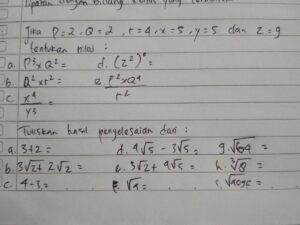 lipatan dengan bilangan
Jika P=2, Q=2, r=4, x=5, y=5 dan z=9
tentukan nilai :
a. P³ x Q² = d. (z²)⁰ =
b. Q² x r² = e. P² x Q⁴ / r²
c. x⁴ / y³
Tuliskan hasil penyelesaian dari :
a. 3+2 = d. 4√5 - 3√5 = g. √64 =
b. 3√2 + 2√2 = e. 3√2 + 4√5 = h. ³√8 =
c. 4-3 = f. √9 = i.